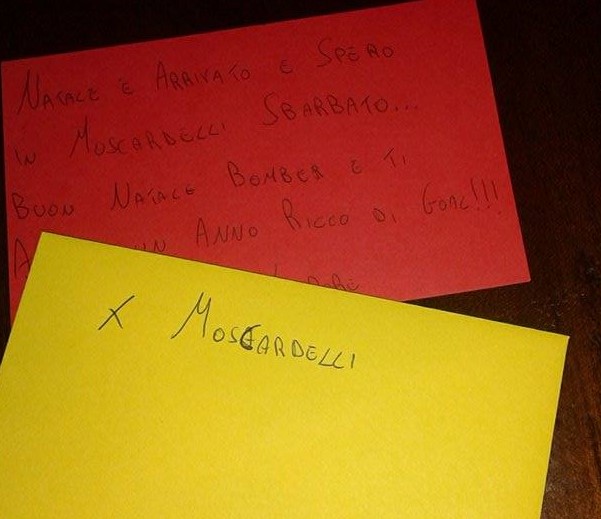 NATALE È ARRIVATO E SPERO
IN MOSCARDELLI SBARBATO...
BUON NATALE BOMBER E TI
UN ANNO RICCO DI GOAL!!!
X MOSCARDELLI